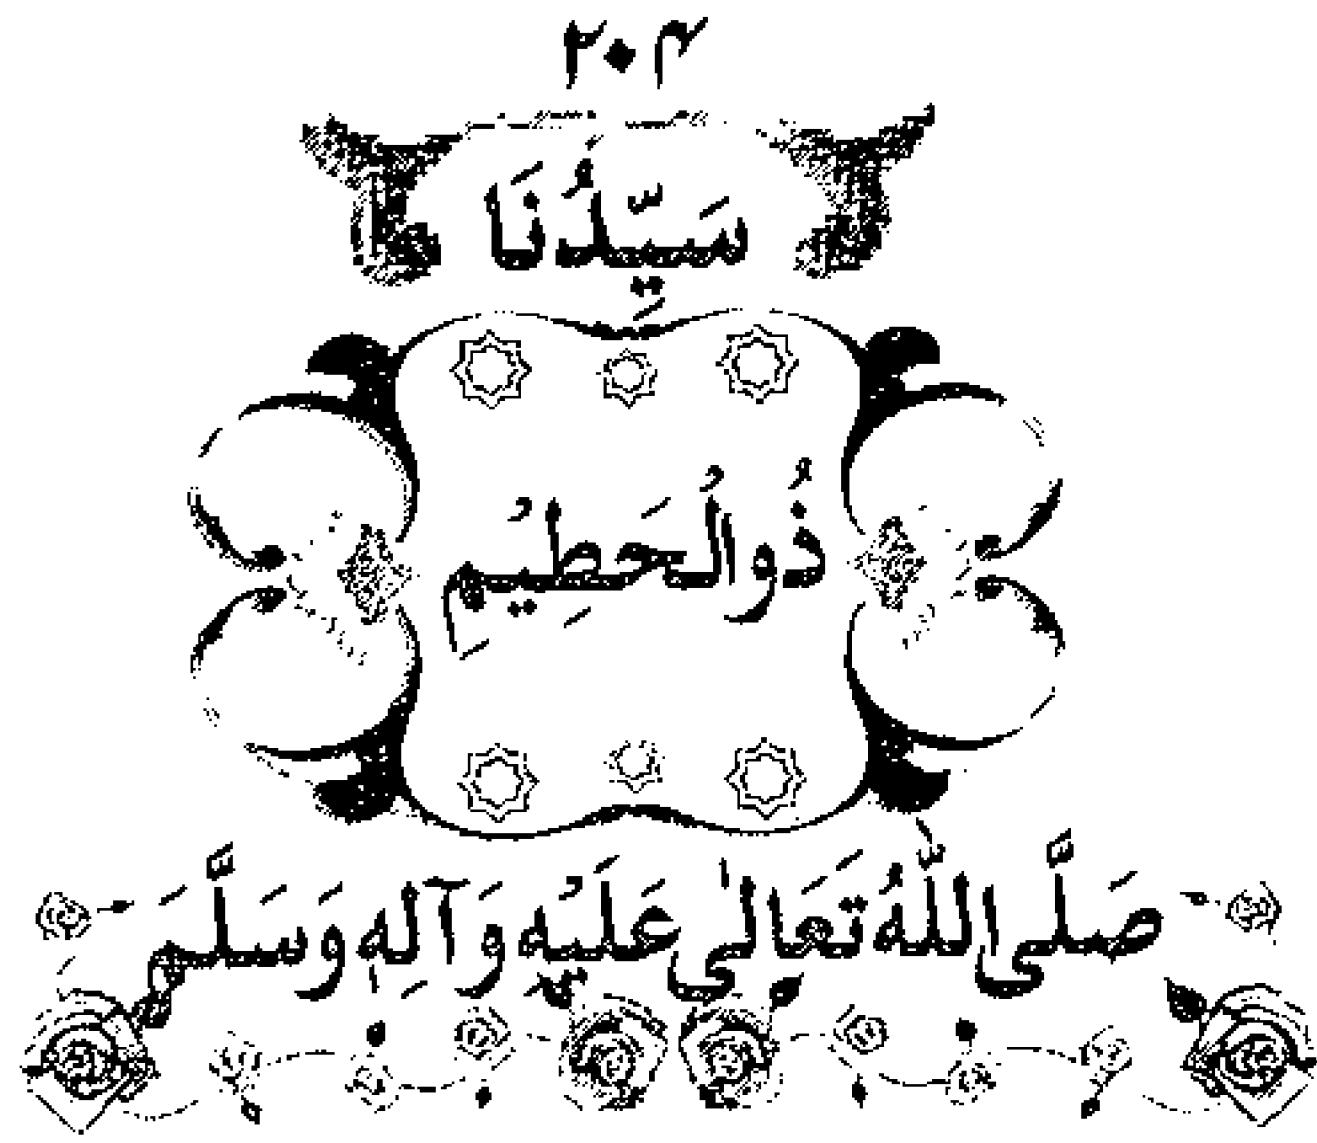 ۲۰۴
سَيِّدُنَا
ذُوالْحَطِيْمِ
صَلَّى اللّٰهُ تَعَالٰى عَلَيْهِ وَآلِهٖ وَسَلَّمَ